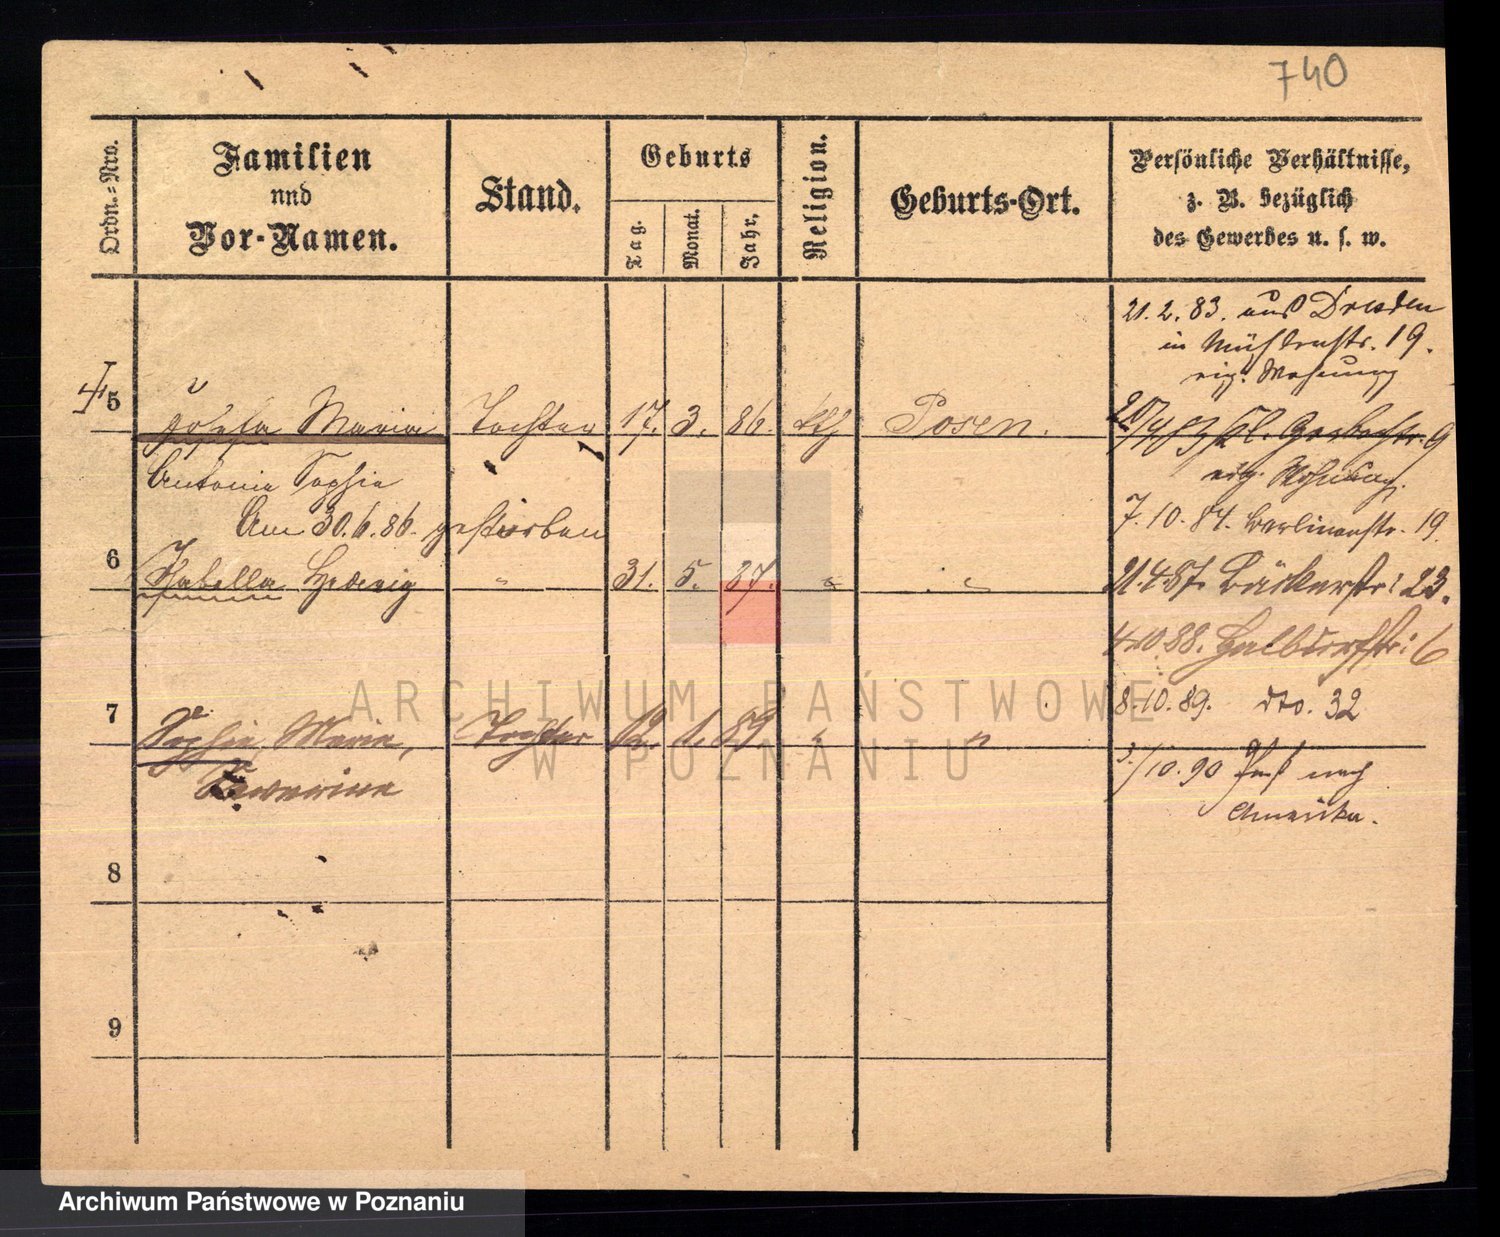 740
Ordn.-Nro.
Familien
und
Vor-Namen.
Stand.
Geburts
Tag.
Monat.
Jahr.
Religion.
Geburts-Ort.
Persönliche Verhältnisse,
z. B. bezüglich
des Gewerbes u. s. w.
21. 2. 83. aus Dresden
in Mühlenstr. 19.
eig. Wohnung
5
Josefa Maria Tochter 17. 3. 86. kth Posen.
Gerberstr. 9
eig. Wohnung.
Antonie Sophie
Am 30. 6. 86. gestorben
7. 10. 84. Berlinerstr. 19.
6
Isabella Hedwig " 31. 5. 87. " "
21. 4. 87. Bäckerstr: 23.
4. 10. 88. Halbdorfstr: 6
8. 10. 89. dto. 32
7
Sophie, Marie, Tochter 12. 1. 89 " "
Sewerine
3./10. 90 Paß nach
Amerika.
8
9
ARCHIWUM PAŃSTWOWE
W POZNANIU
Archiwum Państwowe w Poznaniu